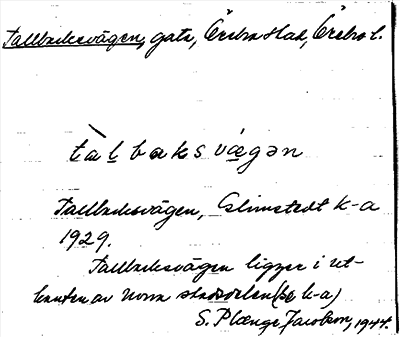 Tallbacksvägen, gata, Örebro stad, Örebro l.
tàl̲baksvæ̲gən
Tallbacksvägen, Glimstedt k-a
1929.
Tallbacksvägen ligger i ut-
kanten av norra stadsdelen (se k-a)
S. Plænge Jacobson, 1944.